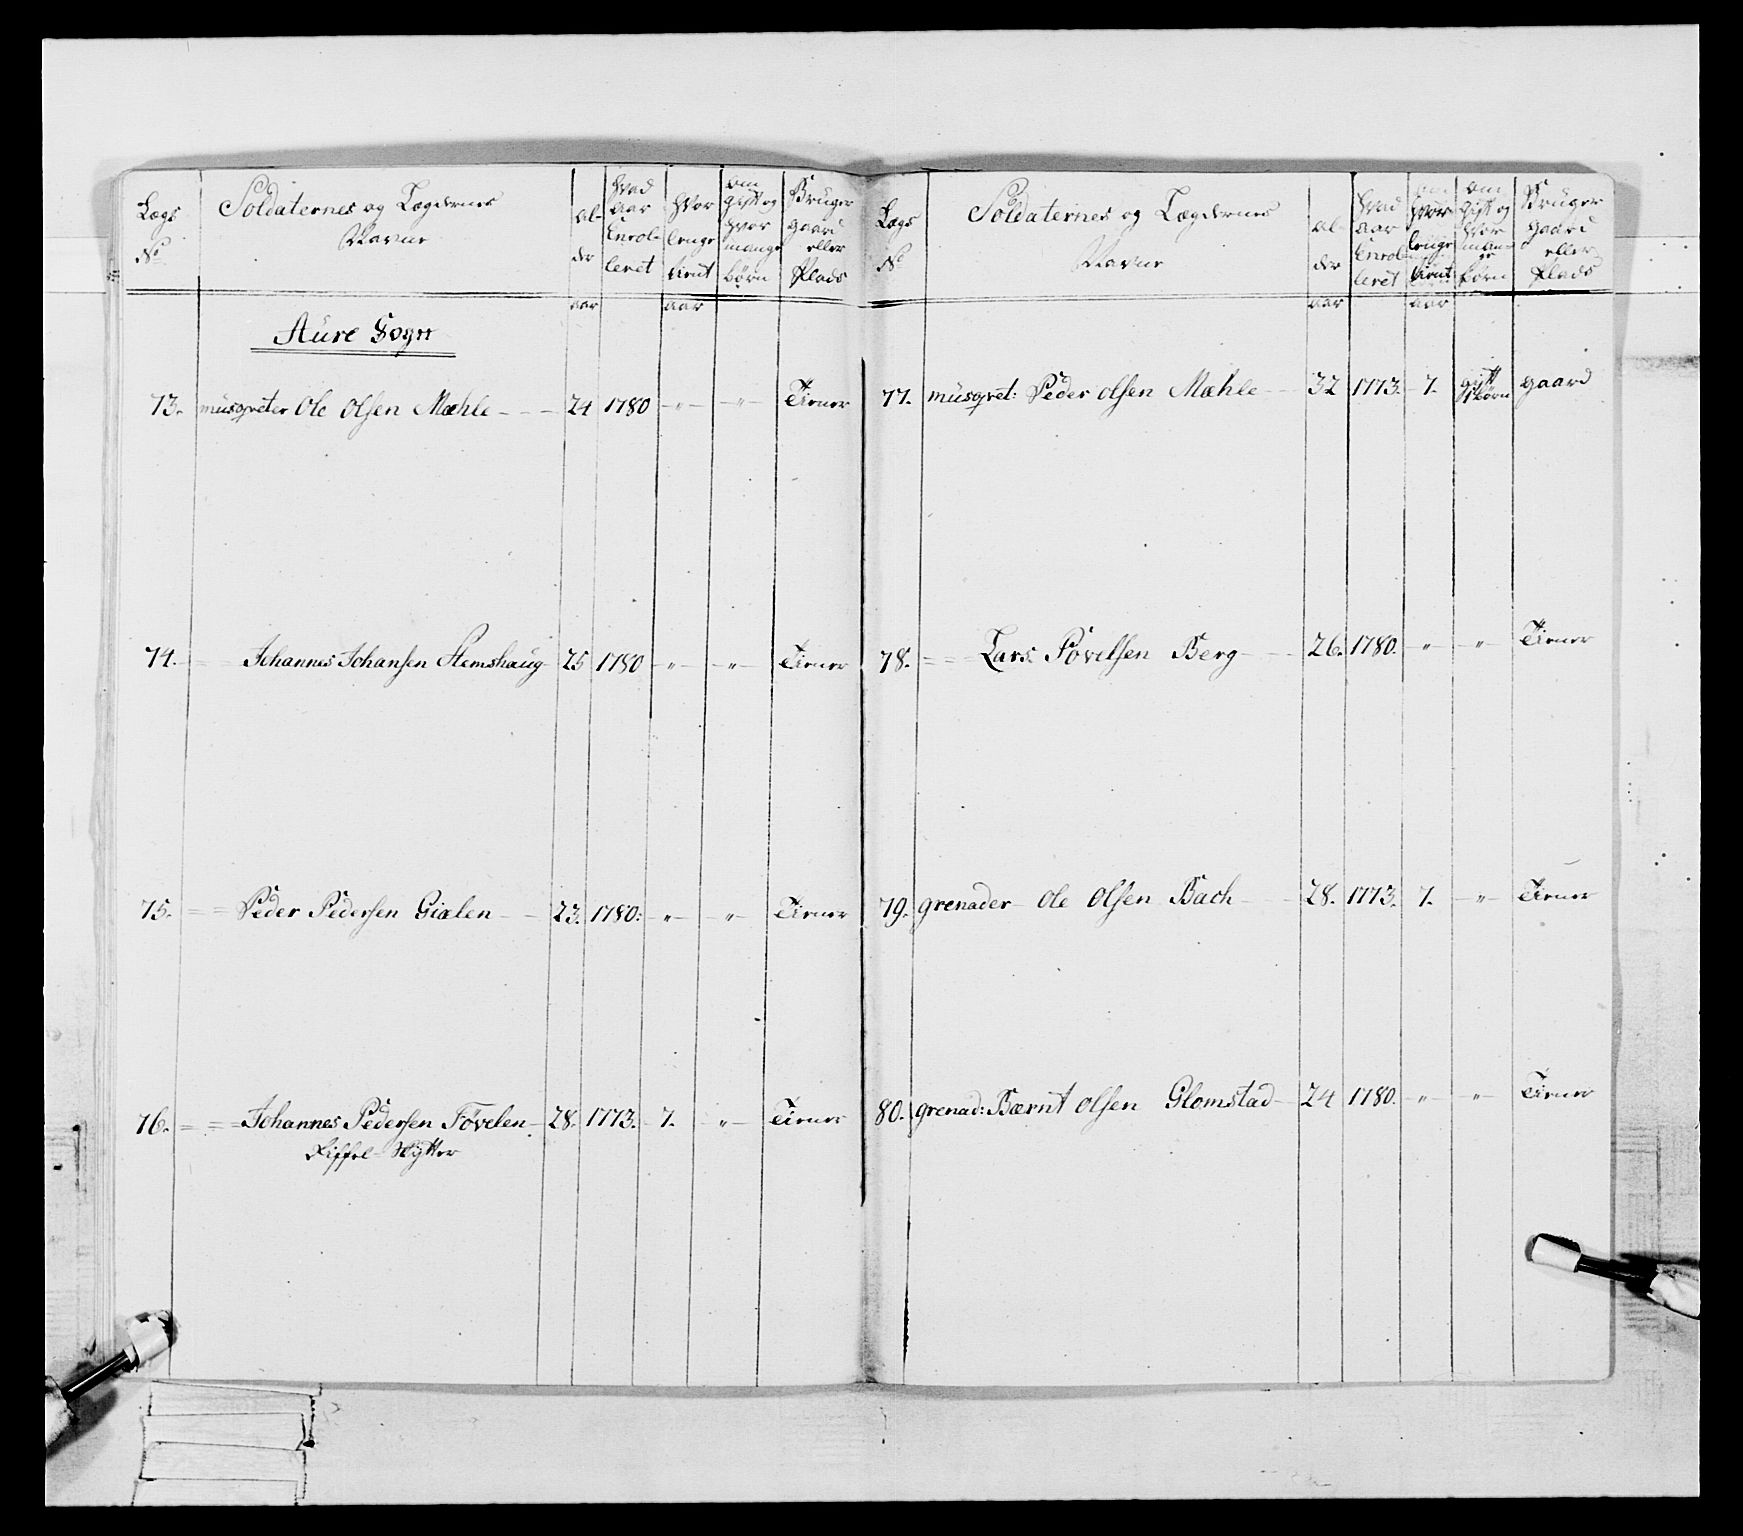 Lægs No
Soldaternes og Lægdernes Navne
al- der aar
Hvad aar Enrol- leret
Hvor lenge tient aar
om gift og hvor mange børn
Bruger gaard eller Plads
Aure Sogn
73. musqveter Ole Olsen Mæhle - - - 24 1780 -"- -"- Tiener
74. = = Johannes Johansen Stemshaug 25 1780 -"- -"- Tiener
75. = = Peder Pedersen Giælen - - 23. 1780. -"- -"- Tiener
76. = = = Johannes Pedersen Tøvelen - 28. 1773. 7. -"- Tiener
Riffel-Skytter
Lægs No
Soldaternes og Lægdernes Navne
al- der aar
Hvad aar Enrol- leret
Hvor lenge tient aar
om Gift og hvor man- ge børn
Bruger gaard eller Plads
77. musqvet: Peder Olsen Mæhle - - 32 1773. 7. gift børn gaard
78. = = Lars Povelsen Berg - - - 26. 1780. " -"- Tiener
79. grenader Ole Olsen Bach - - 28. 1773. 7. -"- Tiener
80. grenad: Bærnt Olsen Glomstad - 24 1780. -"- -"- Tiener